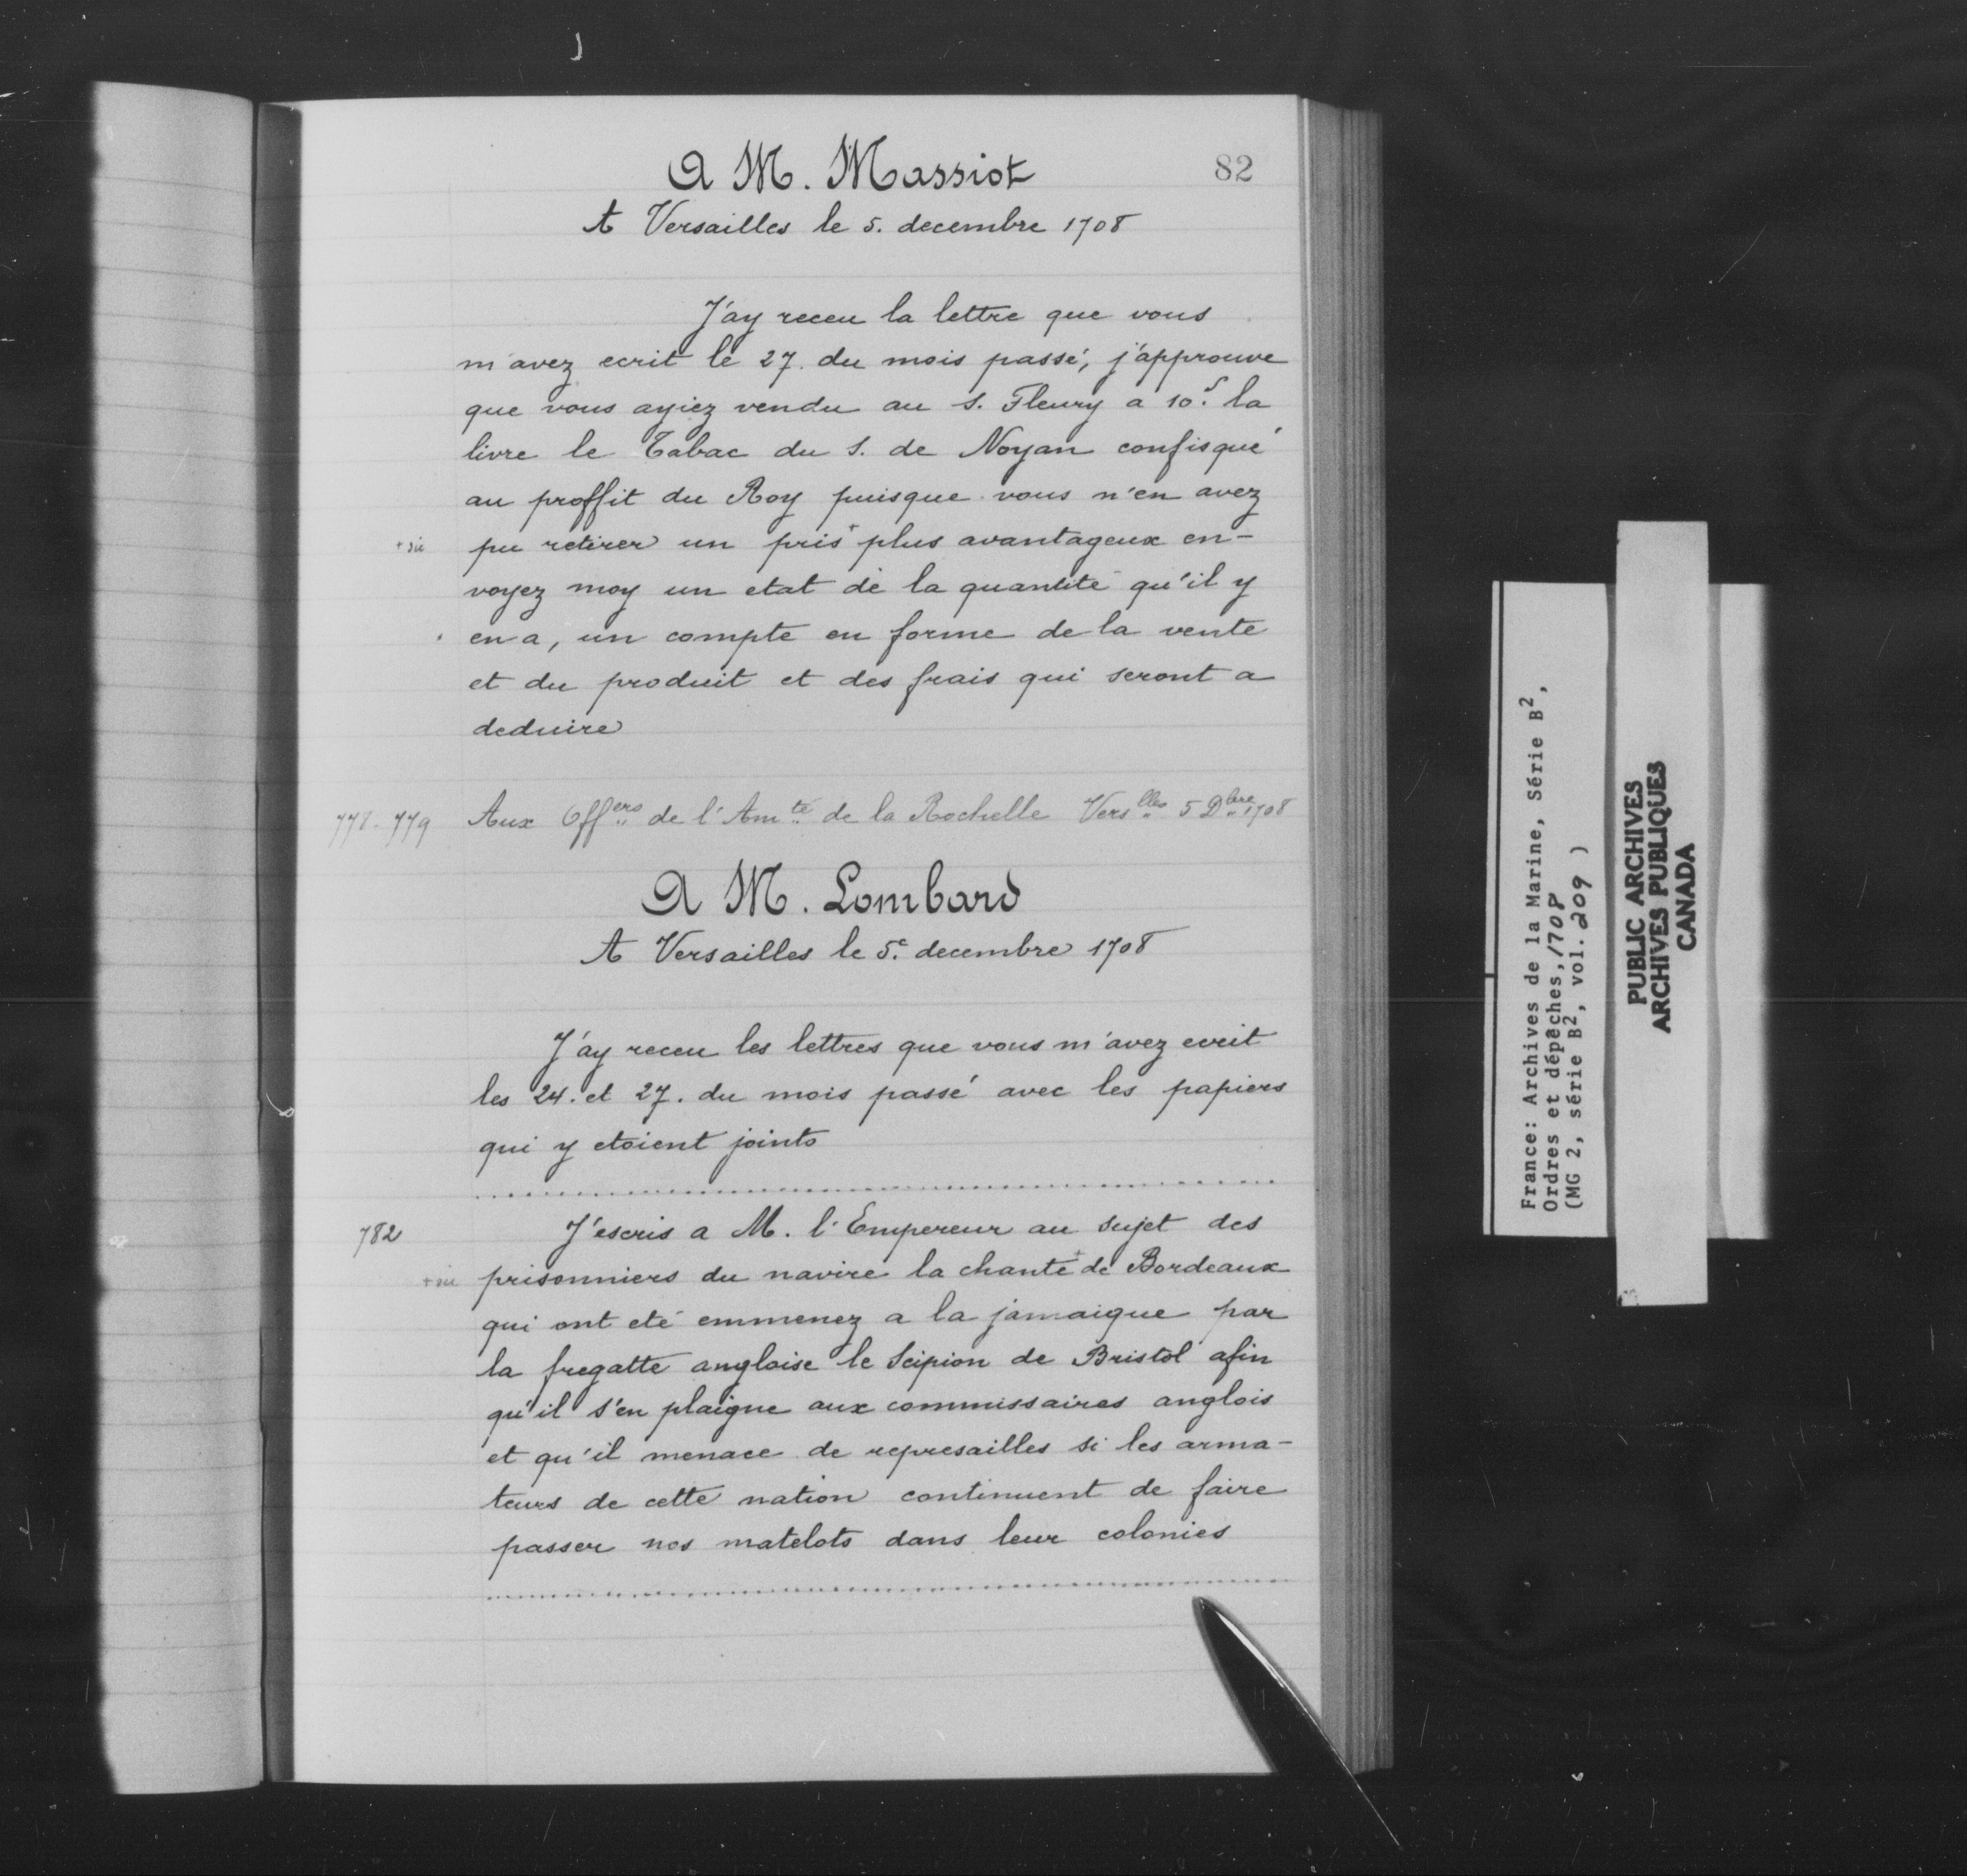 82
A M. Massiot
A Versailles le 5. decembre 1708
J'ay receu la lettre que vous
m'avez ecrit le 27. du mois passé, j'approuve
que vous ayiez vendu au S. Fleury a 10.s la
livre le Tabac du S. de Noyan confisqué
au proffit du Roy puisque vous n'en avez
+ sic pu retirer un pris+ plus avantageux en-
voyez moy un etat de la quantité qu'il y
en a, un compte en forme de la vente
et du produit et des frais qui seront a
deduire
778-779 Aux Offers de l'Amté de la Rochelle Verslles 5 Dbre 1708
A M. Lombard
A Versailles le 5.e decembre 1708
J'ay receu les lettres que vous m'avez ecrit
les 24. et 27. du mois passé avec les papiers
qui y etoient joints
782 J'escris a M. l'Empereur au sujet des
+ sic prisonniers du navire la chante+ de Bordeaux
qui ont eté emmenez a la jamaique par
la fregatte angloise le Scipion de Bristol afin
qu'il s'en plaigne aux commissaires anglois
et qu'il menace de represailles si les arma-
teurs de cette nation continuent de faire
passer nos matelots dans leur colonies
France: Archives de la Marine, Série B2,
Ordres et dépêches, 1708
(MG 2, série B2, vol. 209 )
PUBLIC ARCHIVES
ARCHIVES PUBLIQUES
CANADA